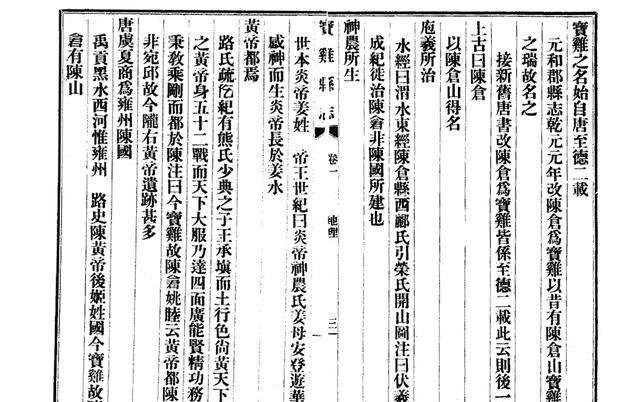 寶雞之名始自唐至德二載
元和郡縣志乾元元年改陳倉爲寶雞以昔有陳倉山寶雞
之瑞故名之
按新舊唐書改陳倉爲寶雞皆係至德二載此云則後一
上古曰陳倉
以陳倉山得名
庖羲所治
水經曰渭水東經陳倉縣西酈氏引榮氏開山圖注曰伏羲
成紀徙治陳倉非陳國所建也
神農所生
寶雞縣志 卷一 地理 三
世本炎帝姜姓 帝王世紀曰炎帝神農氏姜母安登遊華
感神而生炎帝長於姜水
黃帝都焉
路氏疏仡紀有熊氏少典之子王承填而土行色尚黃天下
之黃帝身五十二戰而天下大服乃達四面廣能賢精功務
秉敎乘剛而都於陳注曰今寶雞故陳倉姚睦云黃帝都陳
非宛邱故今隴右黃帝遺跡甚多
唐虞夏商爲雍州陳國
禹貢黑水西河惟雍州 路史陳黃帝後姬姓國今寶雞故
倉有陳山